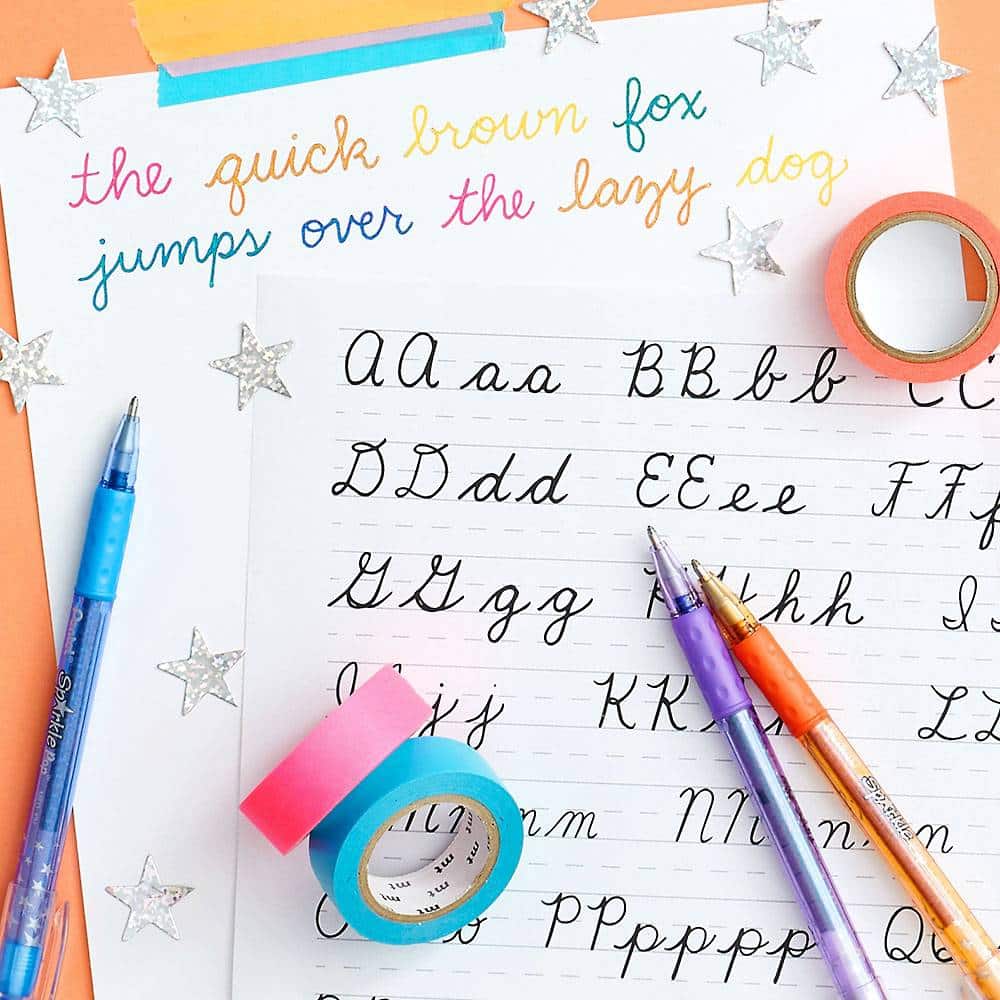 the quick brown fox
jumps over the lazy dog
AAaa BBbb CC
DDdd EEee FFf
GGgg hh I
jj KK L
nm NN n m
PPpppp Q
Sparkle Pop
mt mt mt mt
Sparkle